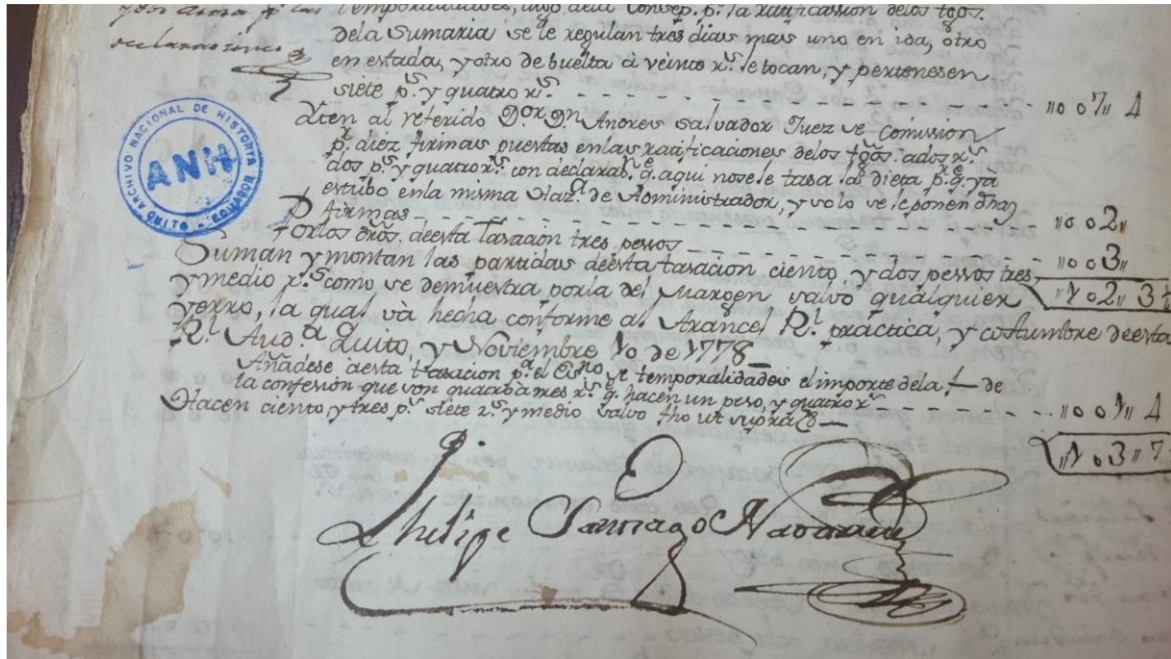 temporalidades,
dela Sumaria se le regulan tres dias mas uno en ida, otro
en estada, y otro de buelta à veinte r.ˢ le tocan, y pertenesen
siete p.ˢ y quatro r.ˢ - - - - - - "00 7" 4
Yten al referido D.ᵒʳ D.ⁿ Andres Salvador Juez de Comission
p.ʳ diez firmas puestas enlas ratificaciones delos tgõs. ados r.ˢ
dos p.ˢ y quatro r.ˢ con declaras.ⁿ q.ᵉ aqui nosele tasa la dieta p.ʳ q.ᵉ ya
estubo enla misma Haz.ᵈᵃ de Administrador, y solo se le ponen dhas
firmas - - - - - - "00 2"
Por los dr̃os. deesta tasacion tres pessos - - - - - - "00 3"
Suman y montan las partidas deesta tasacion ciento, y dos pessos tres
y medio r.ˢ como se demuestra porla del Margen salvo qualquier "102" 3
yerro, la qual và hecha conforme al Arancel R.ˡ práctica, y costumbre deesta
R.ˡ Aud.ᵃ Quito, y Noviembre 10 de 1778
Añadese aesta tasacion p.ᵃ el Es.ⁿᵒ de temporalidades el importe dela de
la confesion que son quatro r.ˢ q.ᵉ hacen un peso, y quatro r.ˢ - - - - "00 1" 4
Hacen ciento, y tres p.ˢ siete r.ˢ y medio salvo fho ut supra "103" 7
Phelipe Santiago Navarrete
ARCHIVO NACIONAL DE HISTORIA
ANH
QUITO - ECUADOR